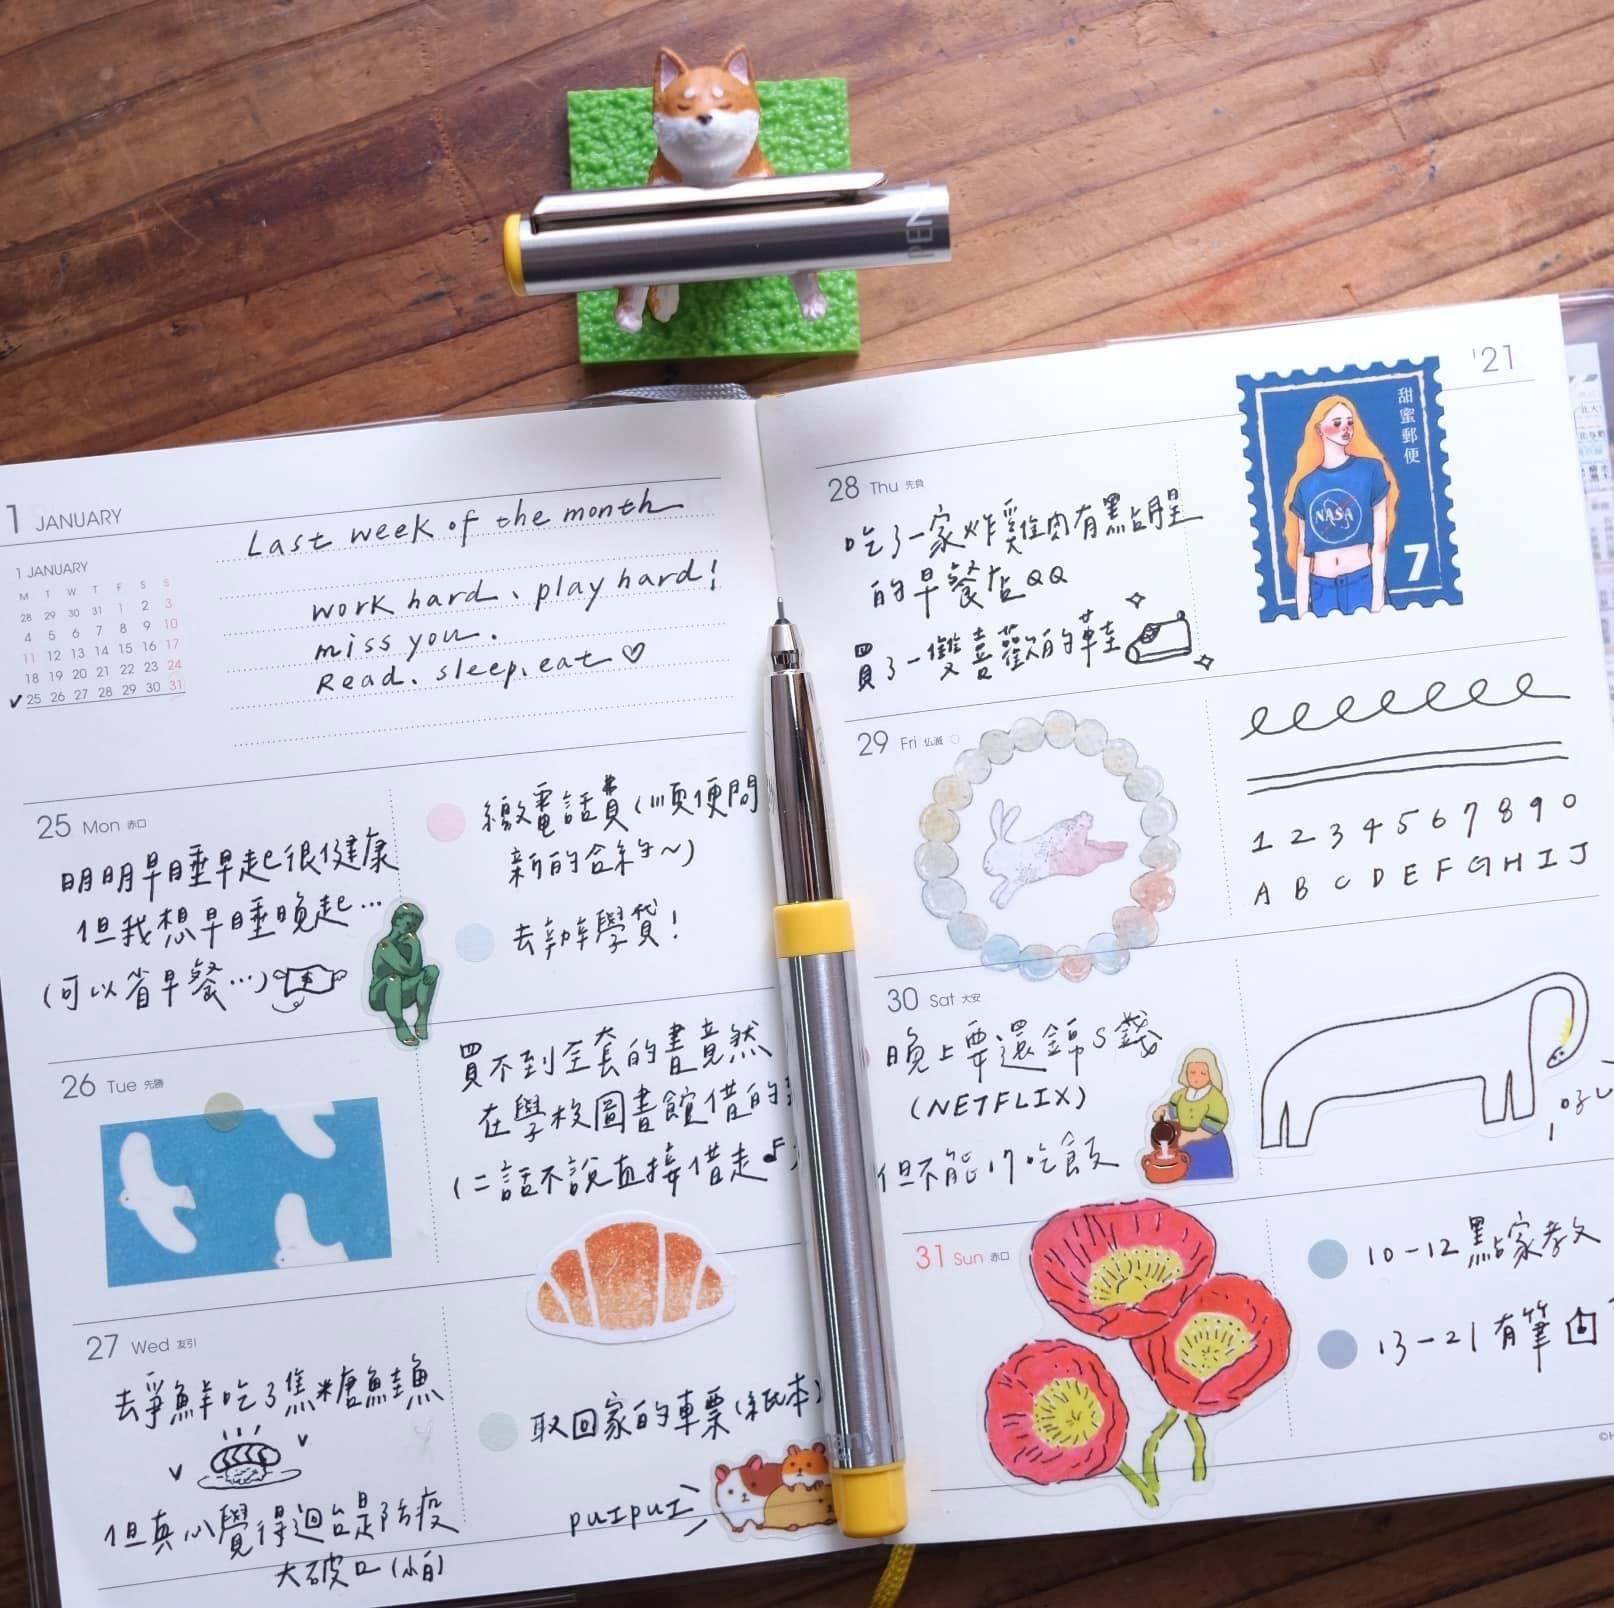 PEN
'21
1 JANUARY
Last week of the month
work hard、play hard!
miss you.
Read、sleep、eat♡
1 JANUARY
M T W T F S S
28 29 30 31 1 2 3
4 5 6 7 8 9 10
11 12 13 14 15 16 17
18 19 20 21 22 23 24
25 26 27 28 29 30 31
25 Mon 赤口
明明早睡早起很健康
但我想早睡晚起…
(可以省早餐…)
繳電話費(順便問
新的合約~)
去辦學貸!
26 Tue 先勝
買不到全套的書竟然
在學校圖書館借的
(二話不說直接借走♪
27 Wed 友引
去爭鮮吃了焦糖鮭魚
但真心覺得迴台是防疫
大破口(怕)
取回家的車票(紙本)
PUIPUI
28 Thu 先負
吃了一家炸雞肉有點腥
的早餐店QQ
買了一雙喜歡的鞋
甜蜜郵便
NASA
7
29 Fri 仏滅
1 2 3 4 5 6 7 8 9 0
A B C D E F G H I J
30 Sat 大安
晚上要還錦S錢
(NETFLIX)
但不能付吃飯
31 Sun 赤口
10-12點家教
13-21有筆